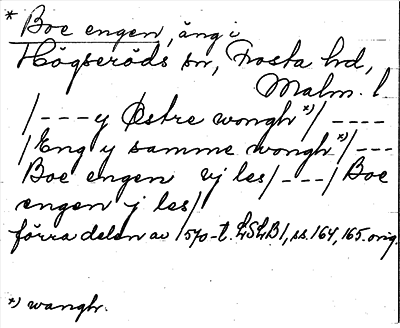 * Boe engen, äng i
Högseröds sn, Frosta hd,
Malm. l
/---y Østre wongh *)/ ----
/Eng y samme wongh *)/---
Boe engen vj les/---/ Boe
engen j les/
förra delen av 1570-t. LSLB1, ss. 164, 165. orig.
*) wangh.